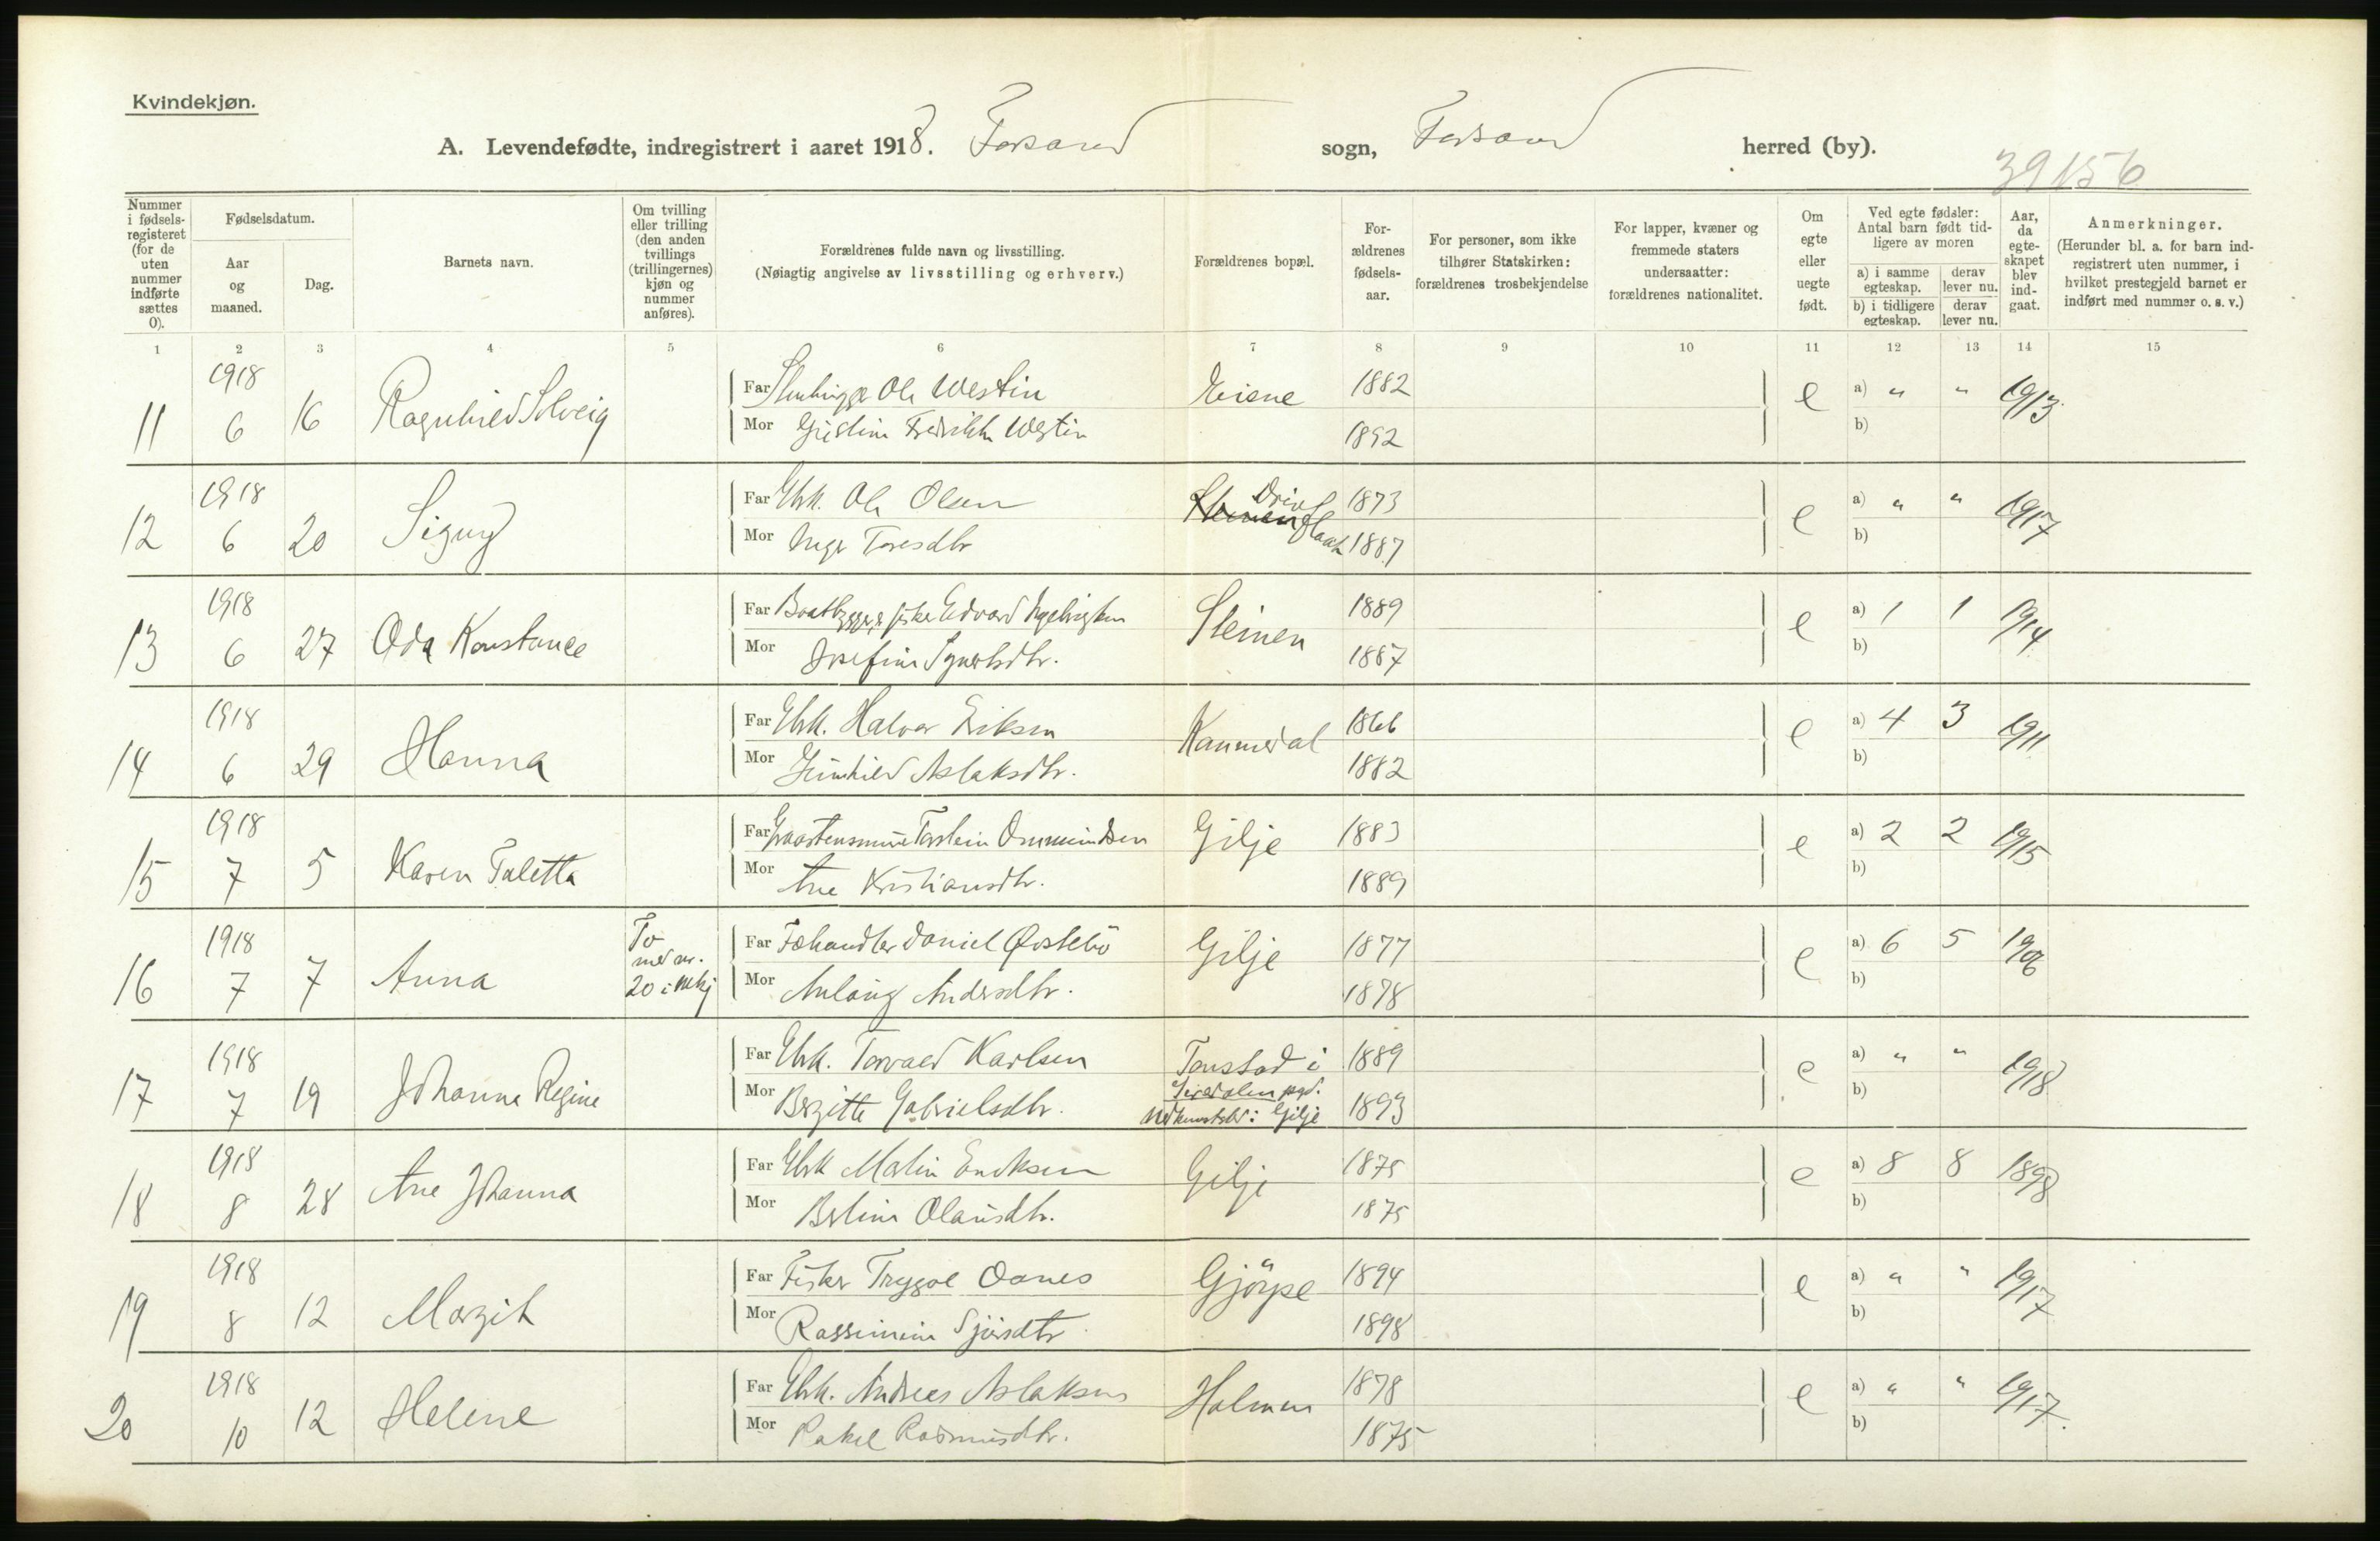 Kvindekjøn.
A. Levendefødte, indregistrert i aaret 1918. Forsand sogn, Forsand herred (by).
39156
Nummer i fødsels-registeret (for de uten nummer indførte sættes 0).
Fødselsdatum.
Aar og maaned.
Dag.
Barnets navn.
Om tvilling eller trilling (den anden tvillings (trillingernes) kjøn og nummer anføres).
Forældrenes fulde navn og livsstilling.
(Nøiagtig angivelse av livsstilling og erhverv.)
Forældrenes bopæl.
For-ældrenes fødsels-aar.
For personer, som ikke tilhører Statskirken: forældrenes trosbekjendelse
For lapper, kvæner og fremmede staters undersaatter: forældrenes nationalitet.
Om egte eller uegte født.
Ved egte fødsler: Antal barn født tid-ligere av moren
a) i samme egteskap.
derav lever nu.
b) i tidligere egteskap.
derav lever nu.
Aar, da egte-skapet blev ind-gaat.
Anmerkninger.
(Herunder bl. a. for barn ind-registrert uten nummer, i hvilket prestegjeld barnet er indført med nummer o. s. v.)
1 2 3 4 5 6 7 8 9 10 11 12 13 14 15
11 1918 6 16 Ragnhild Solveig Far Ole Westin Eiene 1882 e a) " " 1913
Mor Fredrikke Westin 1892 b)
12 1918 6 20 Signy Far Gbk. Ole Olsen Steinen 1873 e a) " " 1917
Mor Inger Toresdtr 1887 b)
13 1918 6 27 Oda Konstance Far Baatbygger & fisker Edvard Steinen 1889 e a) 1 1 1914
Mor Josefine 1887 b)
14 1918 6 29 Hanna Far Gbk. Halvor Eriksen 1866 e a) 4 3 1911
Mor Gunhild Aslaksdtr. 1882 b)
15 1918 7 5 Karen Taletta Far Torstein Ommundsen Gilje 1883 e a) 2 2 1915
Mor Ane Kristiansdtr. 1889 b)
16 1918 7 7 Anna To med nr. 20 i mkj Far Fæhandler Daniel Østebö Gilje 1877 e a) 6 5 1906
Mor Andersdtr. 1878 b)
17 1918 7 19 Johanne Regine Far Gbk. Torvald Karlsen Tonstad i 1889 e a) " " 1918
Mor Bergitte Gabrielsdtr. Siredalen pgd. 1893 b)
Nedkomststed: Gilje
18 1918 8 28 Ane Johanna Far Gbk Martin Enoksen Gilje 1875 e a) 8 8 1898
Mor Bertine Olausdtr. 1875 b)
19 1918 8 12 Margit Far Fisker Trygve Oanes 1894 e a) " " 1917
Mor Rassimine 1898 b)
20 1918 10 12 Helene Far Gbk. Andreas Aslaksen Holmen 1878 e a) " " 1917.
Mor Rakel Rasmusdtr. 1875 b)